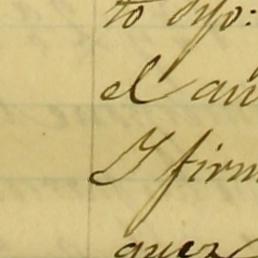 to dijo:
el au
Y firm
quez